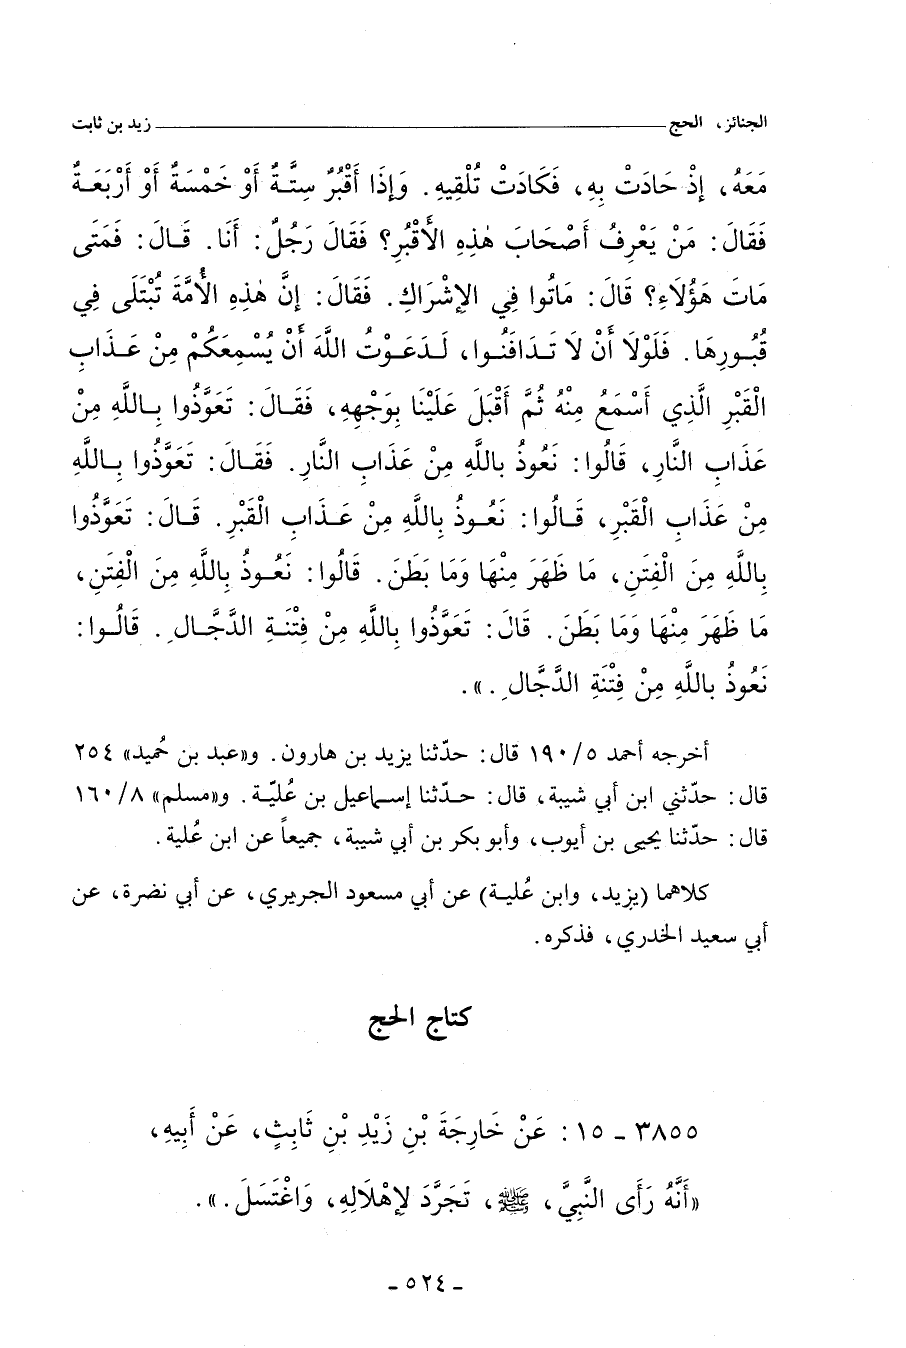 الجنائز، الحج ــــــ زيد بن ثابت
مَعَهُ، إِذْ حَادَتْ بِهِ، فَكَادَتْ تُلْقِيهِ. وَإِذَا أَقْبُرٌ سِتَّةٌ أَوْ خَمْسَةٌ أَوْ أَرْبَعَةٌ
فَقَالَ: مَنْ يَعْرِفُ أَصْحَابَ هٰذِهِ الأَقْبُرِ؟ فَقَالَ رَجُلٌ: أَنَا. قَالَ: فَمَتَى
مَاتَ هَؤُلَاءِ؟ قَالَ: مَاتُوا فِي الإِشْرَاكِ. فَقَالَ: إِنَّ هٰذِهِ الأُمَّةَ تُبْتَلَى فِي
قُبُورِهَا. فَلَوْلَا أَنْ لَا تَدَافَنُوا، لَدَعَوْتُ اللَّهَ أَنْ يُسْمِعَكُمْ مِنْ عَذَابِ
الْقَبْرِ الَّذِي أَسْمَعُ مِنْهُ ثُمَّ أَقْبَلَ عَلَيْنَا بِوَجْهِهِ، فَقَالَ: تَعَوَّذُوا بِاللَّهِ مِنْ
عَذَابِ النَّارِ، قَالُوا: نَعُوذُ بِاللَّهِ مِنْ عَذَابِ النَّارِ. فَقَالَ: تَعَوَّذُوا بِاللَّهِ
مِنْ عَذَابِ الْقَبْرِ، قَالُوا: نَعُوذُ بِاللَّهِ مِنْ عَذَابِ الْقَبْرِ. قَالَ: تَعَوَّذُوا
بِاللَّهِ مِنَ الْفِتَنِ، مَا ظَهَرَ مِنْهَا وَمَا بَطَنَ. قَالُوا: نَعُوذُ بِاللَّهِ مِنَ الْفِتَنِ،
مَا ظَهَرَ مِنْهَا وَمَا بَطَنَ. قَالَ: تَعَوَّذُوا بِاللَّهِ مِنْ فِتْنَةِ الدَّجَّالِ. قَالُوا:
نَعُوذُ بِاللَّهِ مِنْ فِتْنَةِ الدَّجَّالِ.».
أخرجه أحمد ٥/ ١٩٠ قال: حدّثنا يزيد بن هارون. و«عبد بن حُميد» ٢٥٤
قال: حدّثني ابن أبي شيبة، قال: حدّثنا إسماعيل بن عُليّة. و«مسلم» ٨/ ١٦٠
قال: حدّثنا يحيى بن أيوب، وأبو بكر بن أبي شيبة، جميعاً عن ابن عُلية.
كلاهما (يزيد، وابن عُلية) عن أبي مسعود الجريري، عن أبي نضرة، عن
أبي سعيد الخدري، فذكره.
كتاج الحج
٣٨٥٥ ـ ١٥: عَنْ خَارِجَةَ بْنِ زَيْدِ بْنِ ثَابِتٍ، عَنْ أَبِيهِ،
«أَنَّهُ رَأَى النَّبِيَّ، ﷺ، تَجَرَّدَ لإِهْلَالِهِ، وَاغْتَسَلَ.».
ـ ٥٢٤ ـ